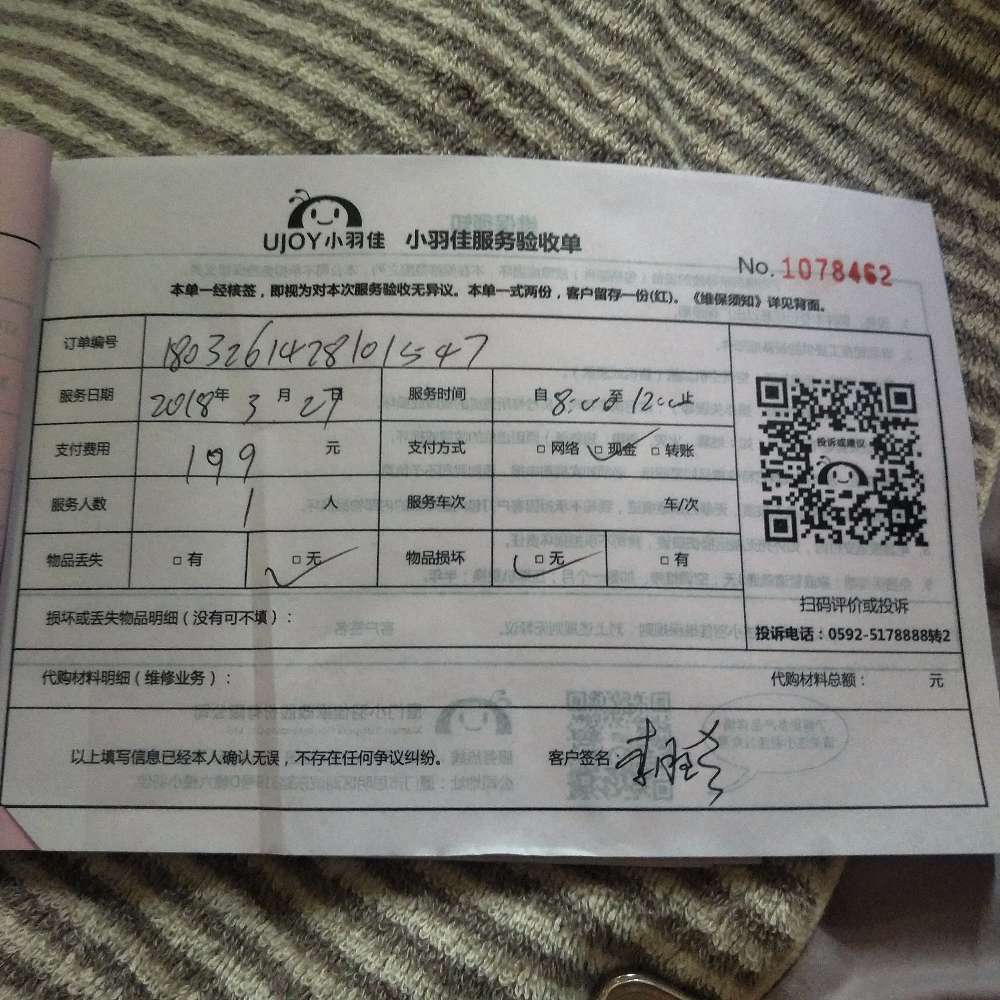 UJOY小羽佳 小羽佳服务验收单
No. 1078462
本单一经核签，即视为对本次服务验收无异议。本单一式两份，客户留存一份(红)。《维保须知》详见背面。
订单编号 1803261428101547
服务日期 2018年 3月 27日 服务时间 自8:00至12:00止
支付费用 199 元 支付方式 □网络 □现金 □转账
服务人数 1 人 服务车次 车/次
物品丢失 □有 □无 物品损坏 □无 □有
投诉或建议
扫码评价或投诉
投诉电话：0592-5178888转2
损坏或丢失物品明细（没有可不填）：
代购材料明细（维修业务）： 代购材料总额： 元
以上填写信息已经本人确认无误，不存在任何争议纠纷。 客户签名：